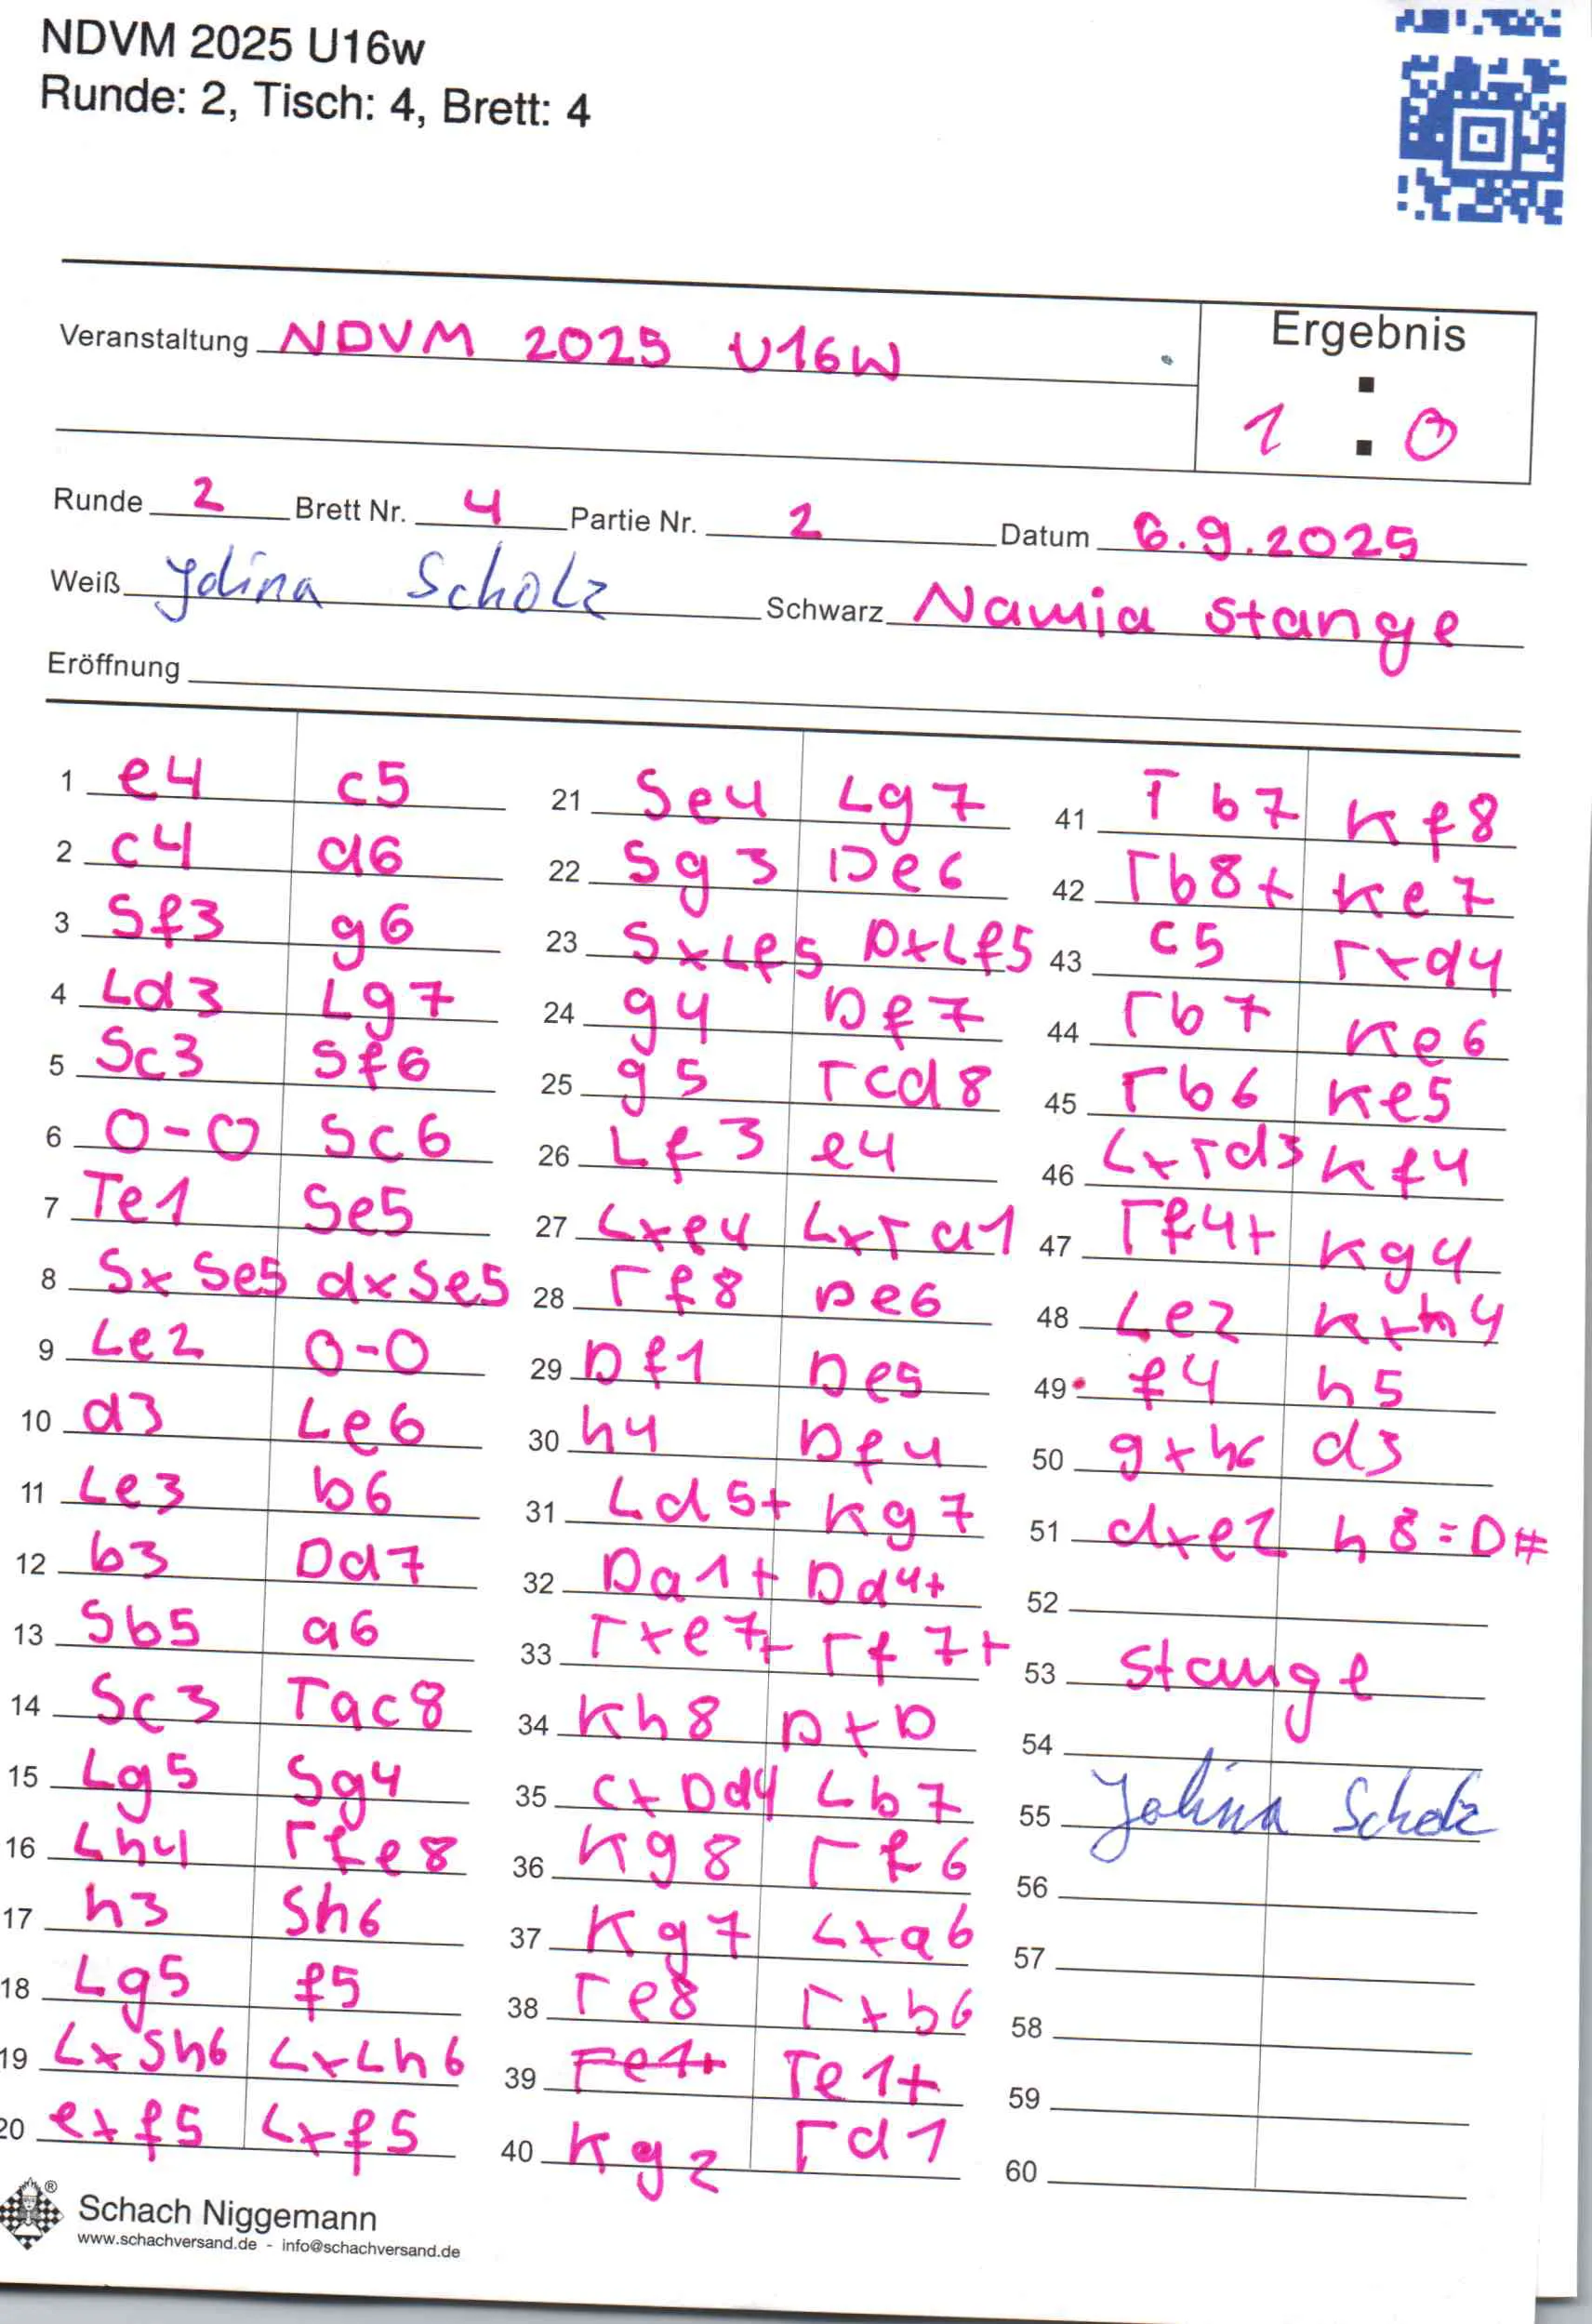 NDVM 2025 U16w
Runde: 2, Tisch: 4, Brett: 4
Veranstaltung NDVM 2025 U16W
Ergebnis
1 : 0
Runde 2 Brett Nr. 4 Partie Nr. 2 Datum 6.9.2025
Weiß Jolina Scholz Schwarz Namia Stange
Eröffnung
1 e4 c5
2 c4 d6
3 Sf3 g6
4 Ld3 Lg7
5 Sc3 Sf6
6 0-0 Sc6
7 Te1 Se5
8 SxSe5 dxSe5
9 Le2 0-0
10 d3 Le6
11 Le3 b6
12 b3 Dd7
13 Sb5 a6
14 Sc3 Tac8
15 Lg5 Sg4
16 Lh4 Tfe8
17 h3 Sh6
18 Lg5 f5
19 LxSh6 LxLh6
20 exf5 Lxf5
21 Se4 Lg7
22 Sg3 De6
23 SxLf5 DxLf5
24 g4 Df7
25 g5 Tcd8
26 Lf3 e4
27 Lxe4 LxTa1
28 Tf8 De6
29 Df1 De5
30 h4 Df4
31 Ld5+ Kg7
32 Da1+ Dd4+
33 Txe7+ Tf7+
34 Kh8 DxD
35 cxDd4 Lb7
36 Kg8 Tf6
37 Kg7 Lxa6
38 Te8 Txb6
39 Te1+
40 Kg2 Td1
41 Tb7 Kf8
42 Tb8+ Ke7
43 c5 Txd4
44 Tb7 Ke6
45 Tb6 Ke5
46 LxTd3 Kf4
47 Tf4+ Kg4
48 Le2 Kxh4
49 f4 h5
50 gxh6 d3
51 dxe2 h8=D#
52
53 Stange
54
55 Jolina Scholz
56
57
58
59
60
Schach Niggemann
www.schachversand.de - info@schachversand.de